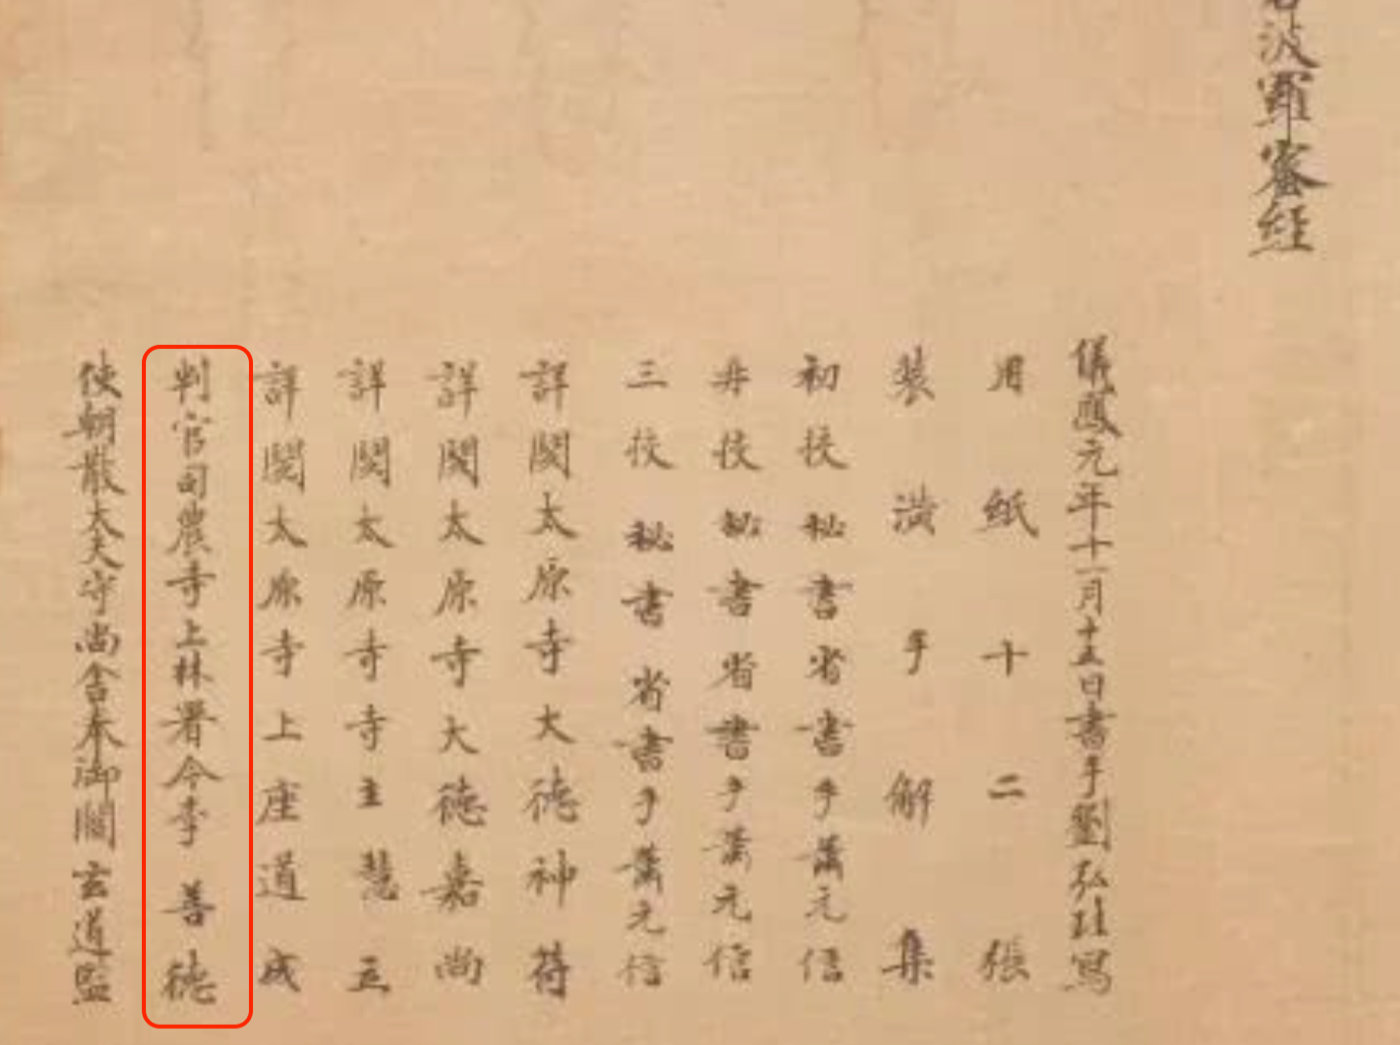 波羅蜜經
儀鳳元年十一月十五日書手劉弘珪寫
用紙十二張
裝潢手解集
初校秘書省書手蕭元信
再校秘書省書手蕭元信
三校秘書省書手蕭元信
詳閱太原寺大德神苻
詳閱太原寺大德嘉尚
詳閱太原寺寺主慧立
詳閱太原寺上座道成
判官司農寺上林署令李善德
使朝散大夫守尚舍奉御閻玄道監